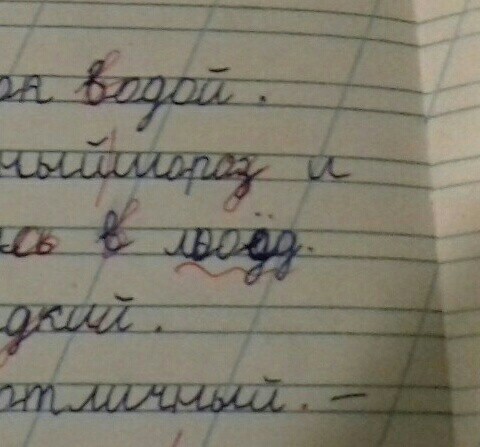 он водой.
ный мороз и
сь в льоёд.
дкий.
отличный. —